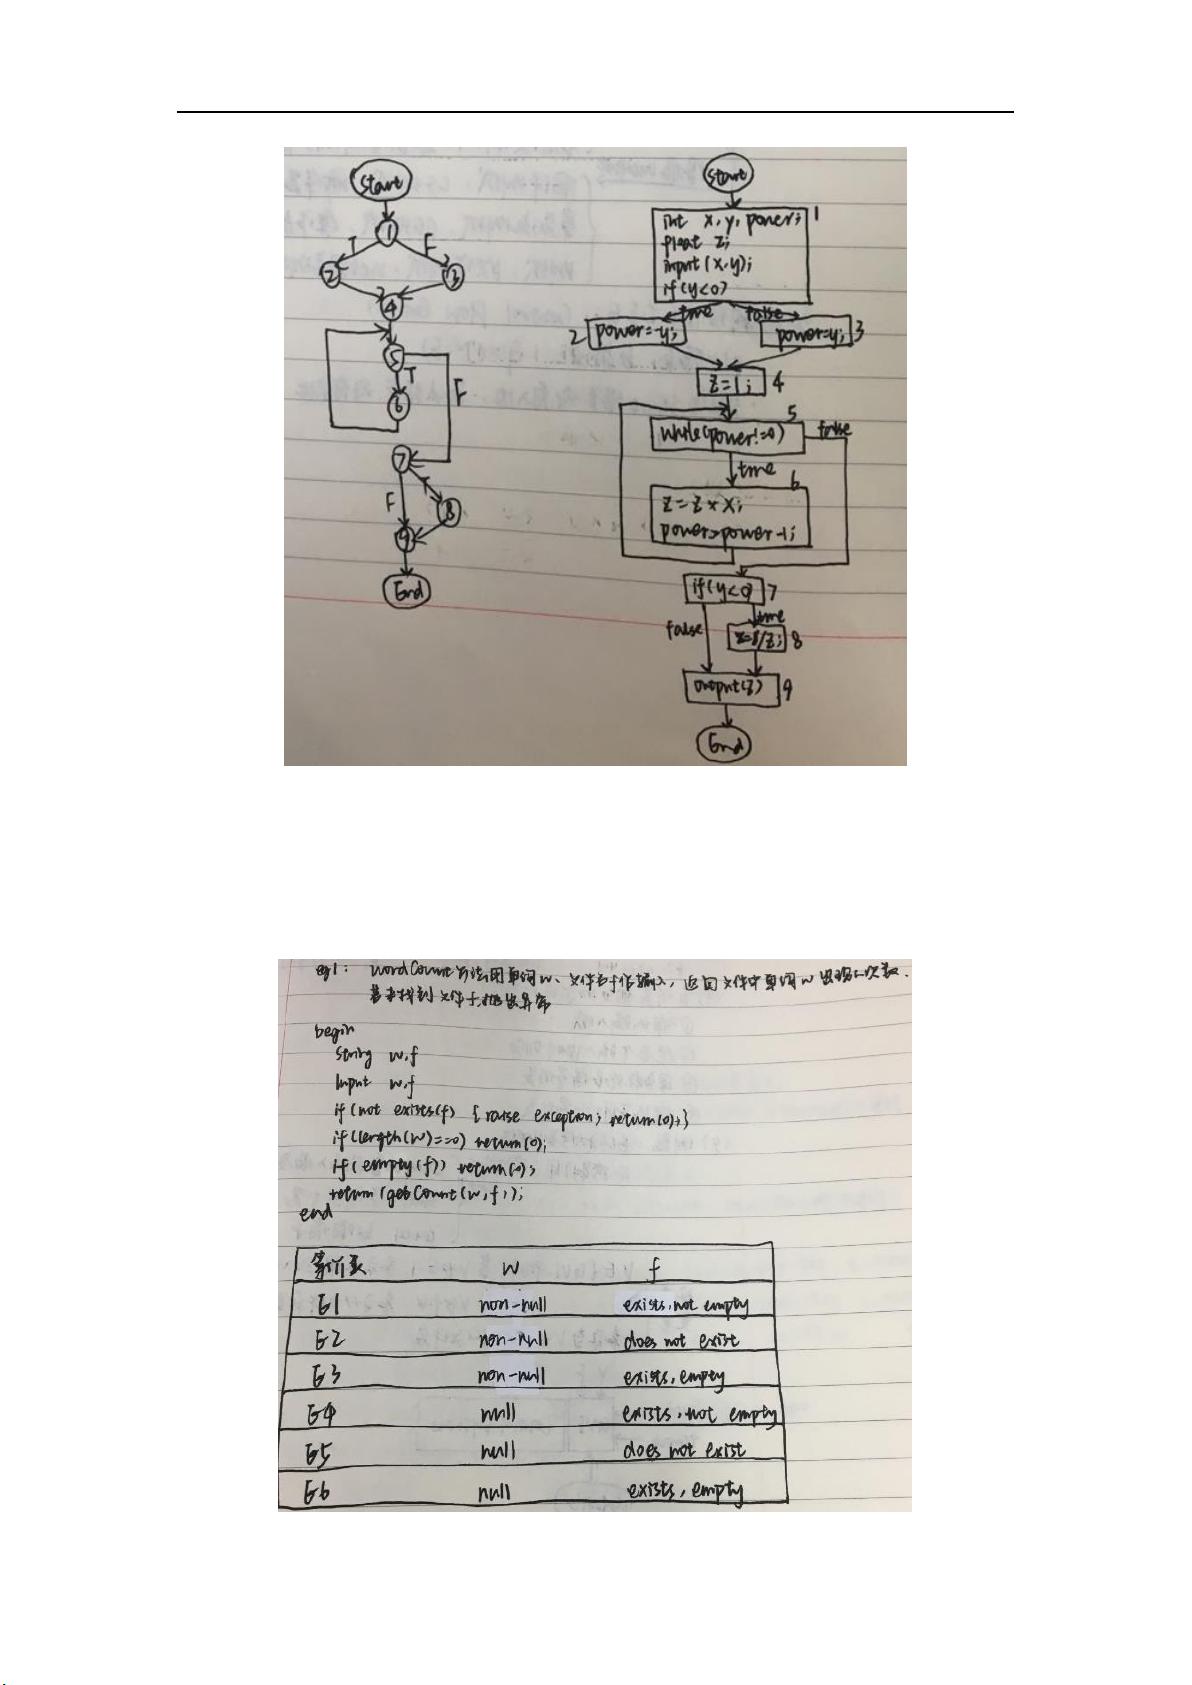 Start
1
T
F
2
3
4
5
T
6
F
7
F
T
8
9
End
Start
int x, y, power; 1
float z;
input(x,y);
if(y<0)
true false
2 power=-y; power=y; 3
z=1; 4
5
while(power!=0) false
true
6
z=z*x;
power=power-1;
if(y<0) 7
false true
z=1/z; 8
output(z) 9
End
eg1: wordCount方法用单词w、文件名f作输入，返回文件中单词w出现的次数.
若未找到文件f,抛出异常
begin
String w,f
Input w,f
if(not exists(f) {raise exception; return(0);}
if(length(w)==0) return(0);
if(empty(f)) return(0);
return(getCount(w,f));
end
等价类 w f
E1 non-null exists, not empty
E2 non-null does not exist
E3 non-null exists, empty
E4 null exists, not empty
E5 null does not exist
E6 null exists, empty